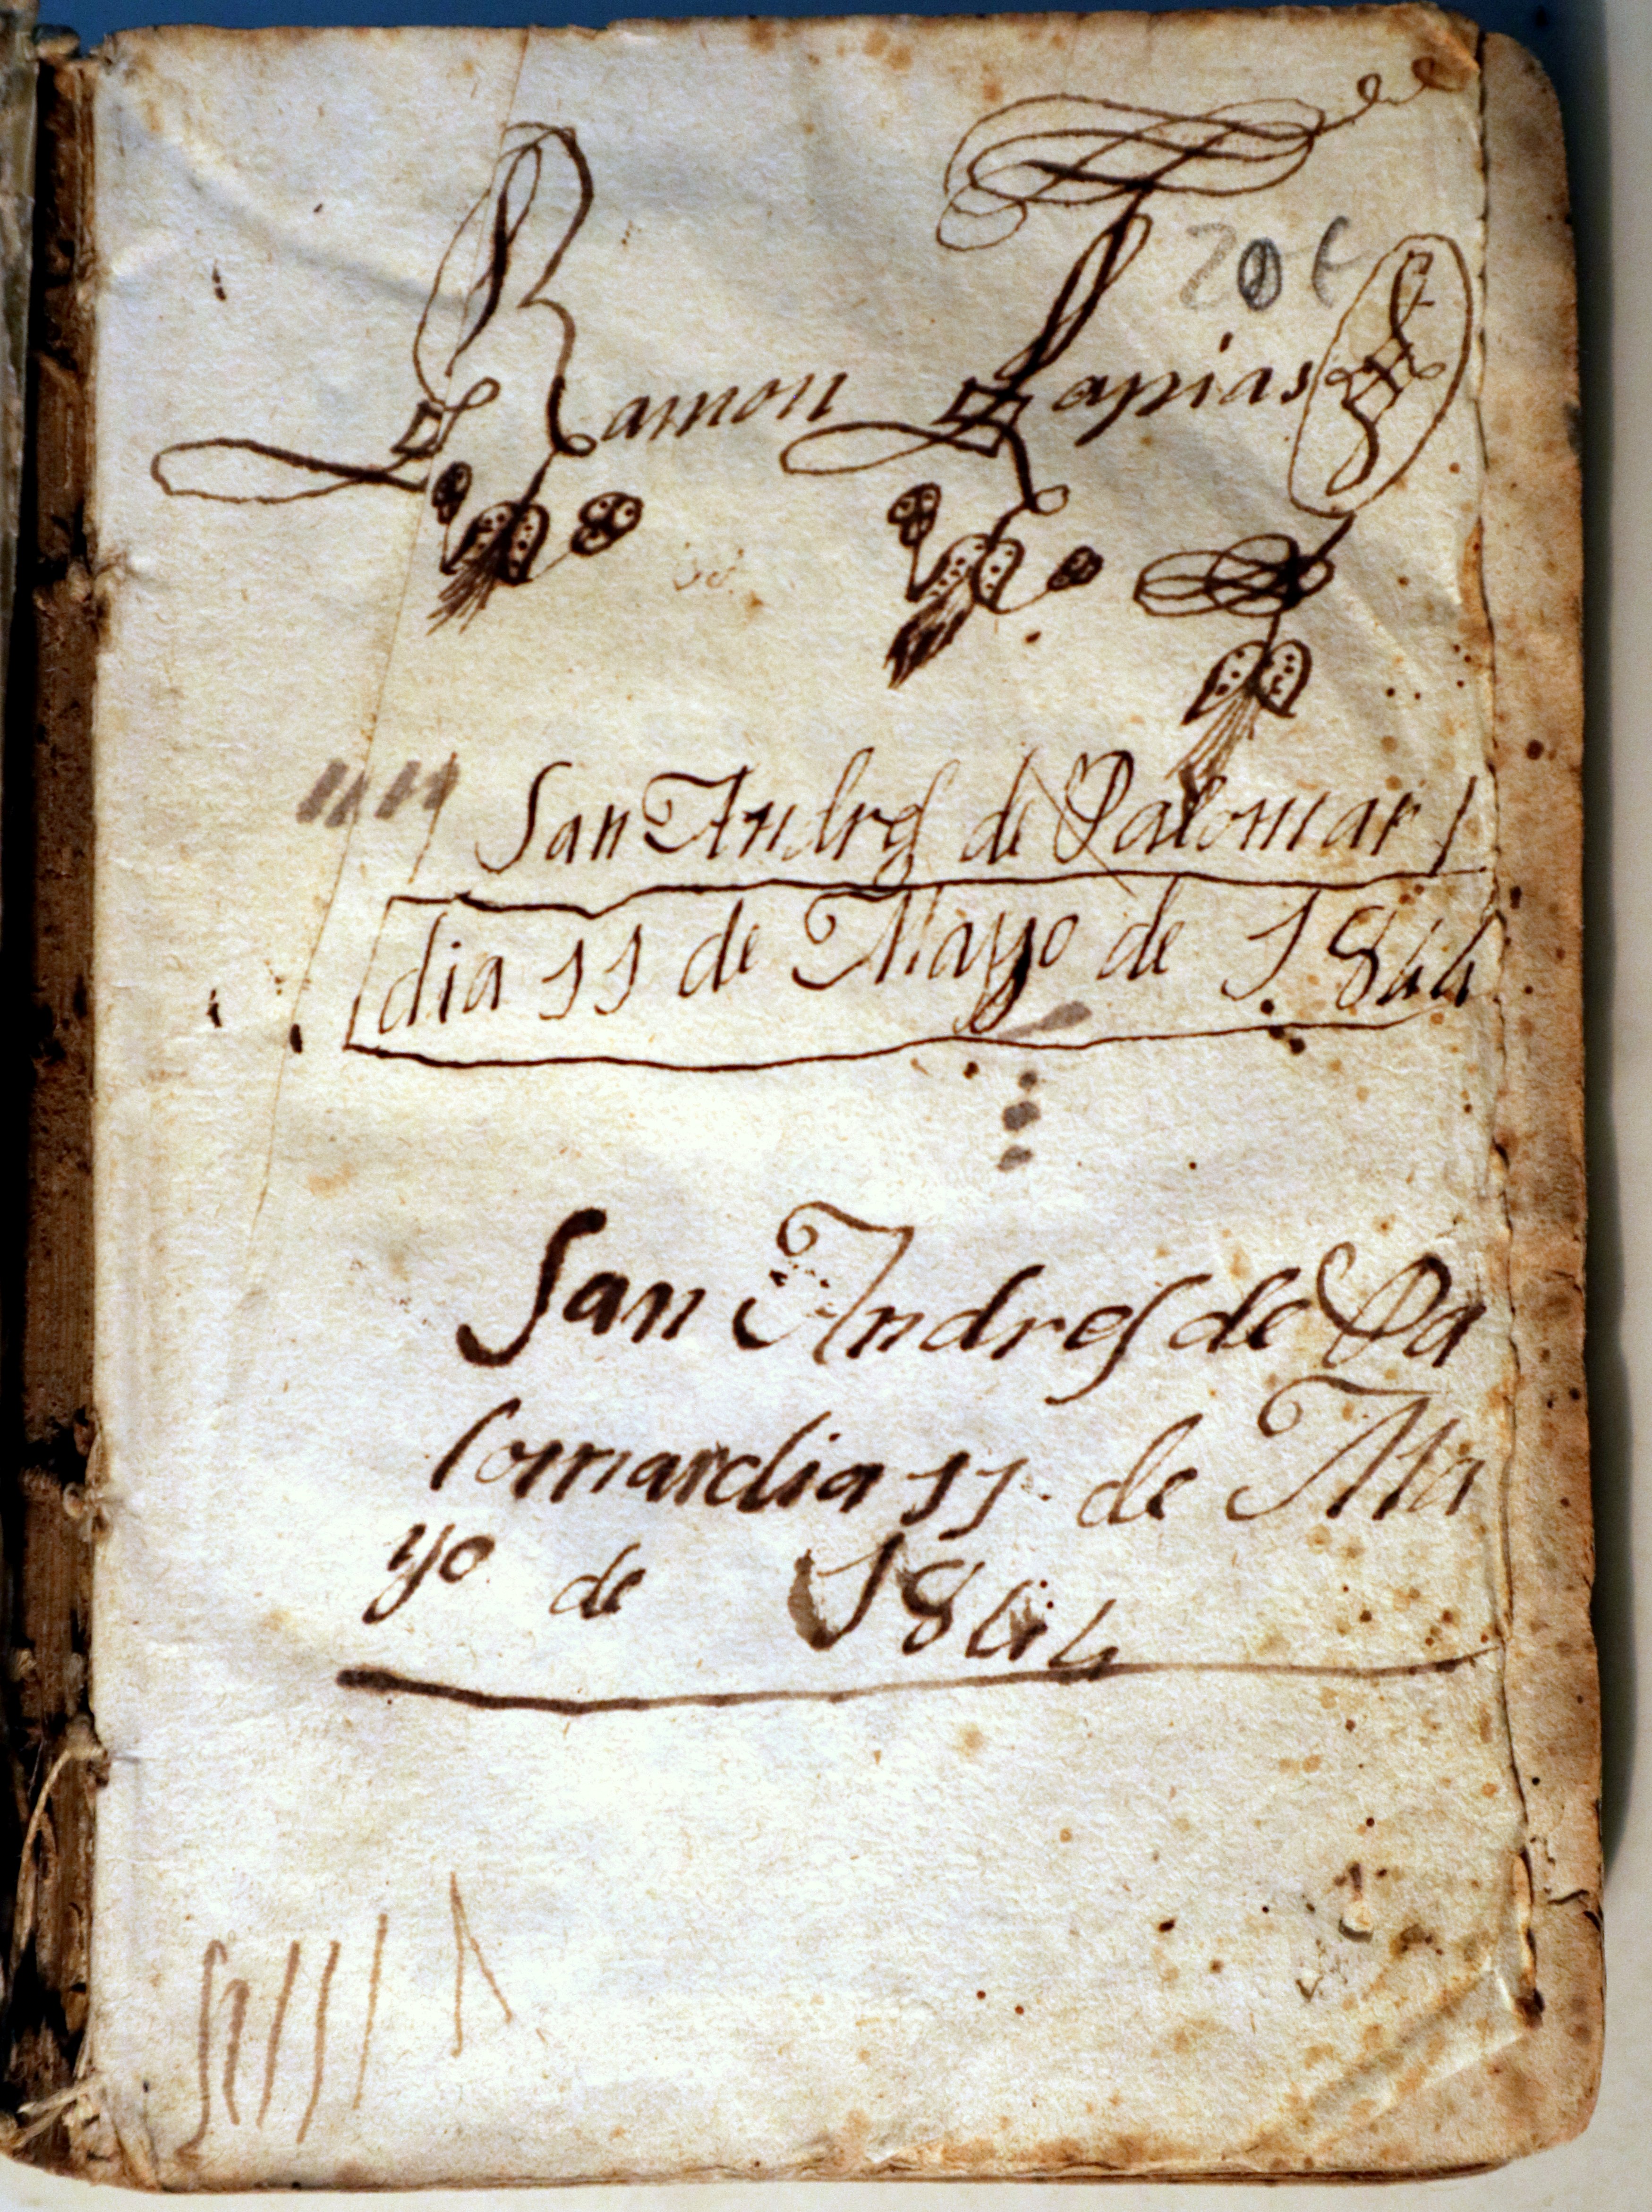 20€
Ramon Tapias
San Andres de Palomar
dia 11 de Mayo de 1844
San Andres de Pa
lomar dia 11 de Ma
yo de 1844